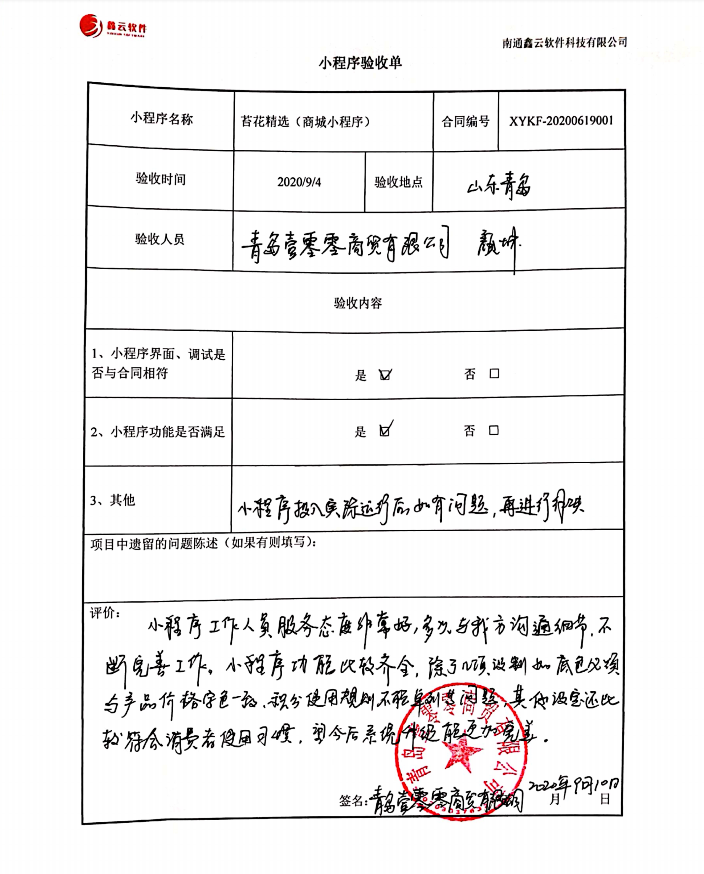 鑫云软件
南通鑫云软件科技有限公司
小程序验收单
小程序名称 苔花精选（商城小程序） 合同编号 XYKF-20200619001
验收时间 2020/9/4 验收地点 山东青岛
验收人员 青岛壹零零商贸有限公司 颜
验收内容
1、小程序界面、调试是
否与合同相符 是 ☑ 否 □
2、小程序功能是否满足 是 ☑ 否 □
3、其他 小程序投入实际运行后如有问题，再进行解决
项目中遗留的问题陈述（如果有则填写）：
评价： 小程序工作人员服务态度非常好，多次与我方沟通细节，不
断完善工作。小程序功能比较齐全，除了几项限制如底色必须
与产品价格字色一致、积分使用规则不能单列等问题，其他设定还比
较符合消费者使用习惯，望今后系统升级能更加完善。
青岛壹零零商贸有限公司
签名：青岛壹零零商贸有限公司 2020年9月10日
月 日